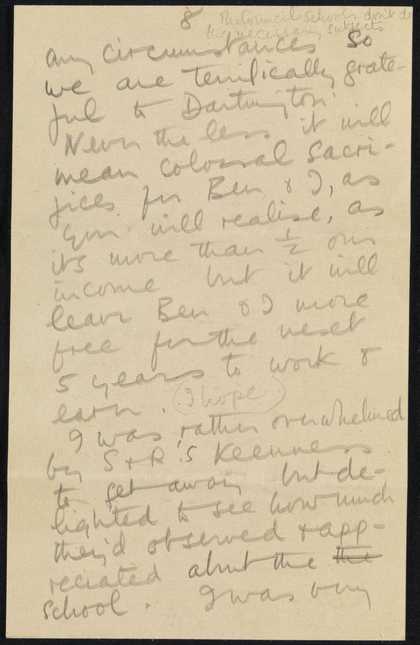 8 The Council Schools don't do
the necessary subjects
any circumstances so
we are terrifically grate-
ful to Dartington.
Never the less it will
mean colossal sacri-
fices for Ben & I, as
you will realise, as
its more than ½ our
income but it will
leave Ben & I more
free for the next
5 years to work &
earn. I hope
I was rather overwhelmed
by S & R'S Keenness
to get away but de-
lighted to see how much
they'd observed & app-
reciated about the the
school. I was very